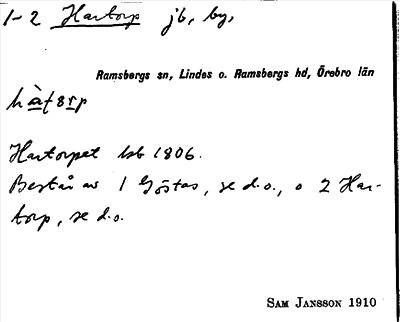 1-2 Hartorp jb, by,
Ramsbergs sn, Lindes o. Ramsbergs hd, Örebro län
Hartorpet lsb 1806.
Består av 1 Göstas, se d.o., o 2 Har-
torp, se d.o.
SAM JANSSON 1910